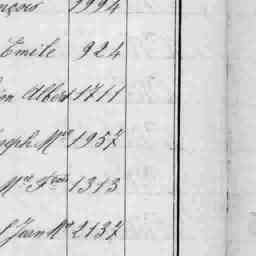 nçois 1994
Emile 924
on Albert 1711
seph Mie 1957
Mie Fois 1313
Jean Mie 2137